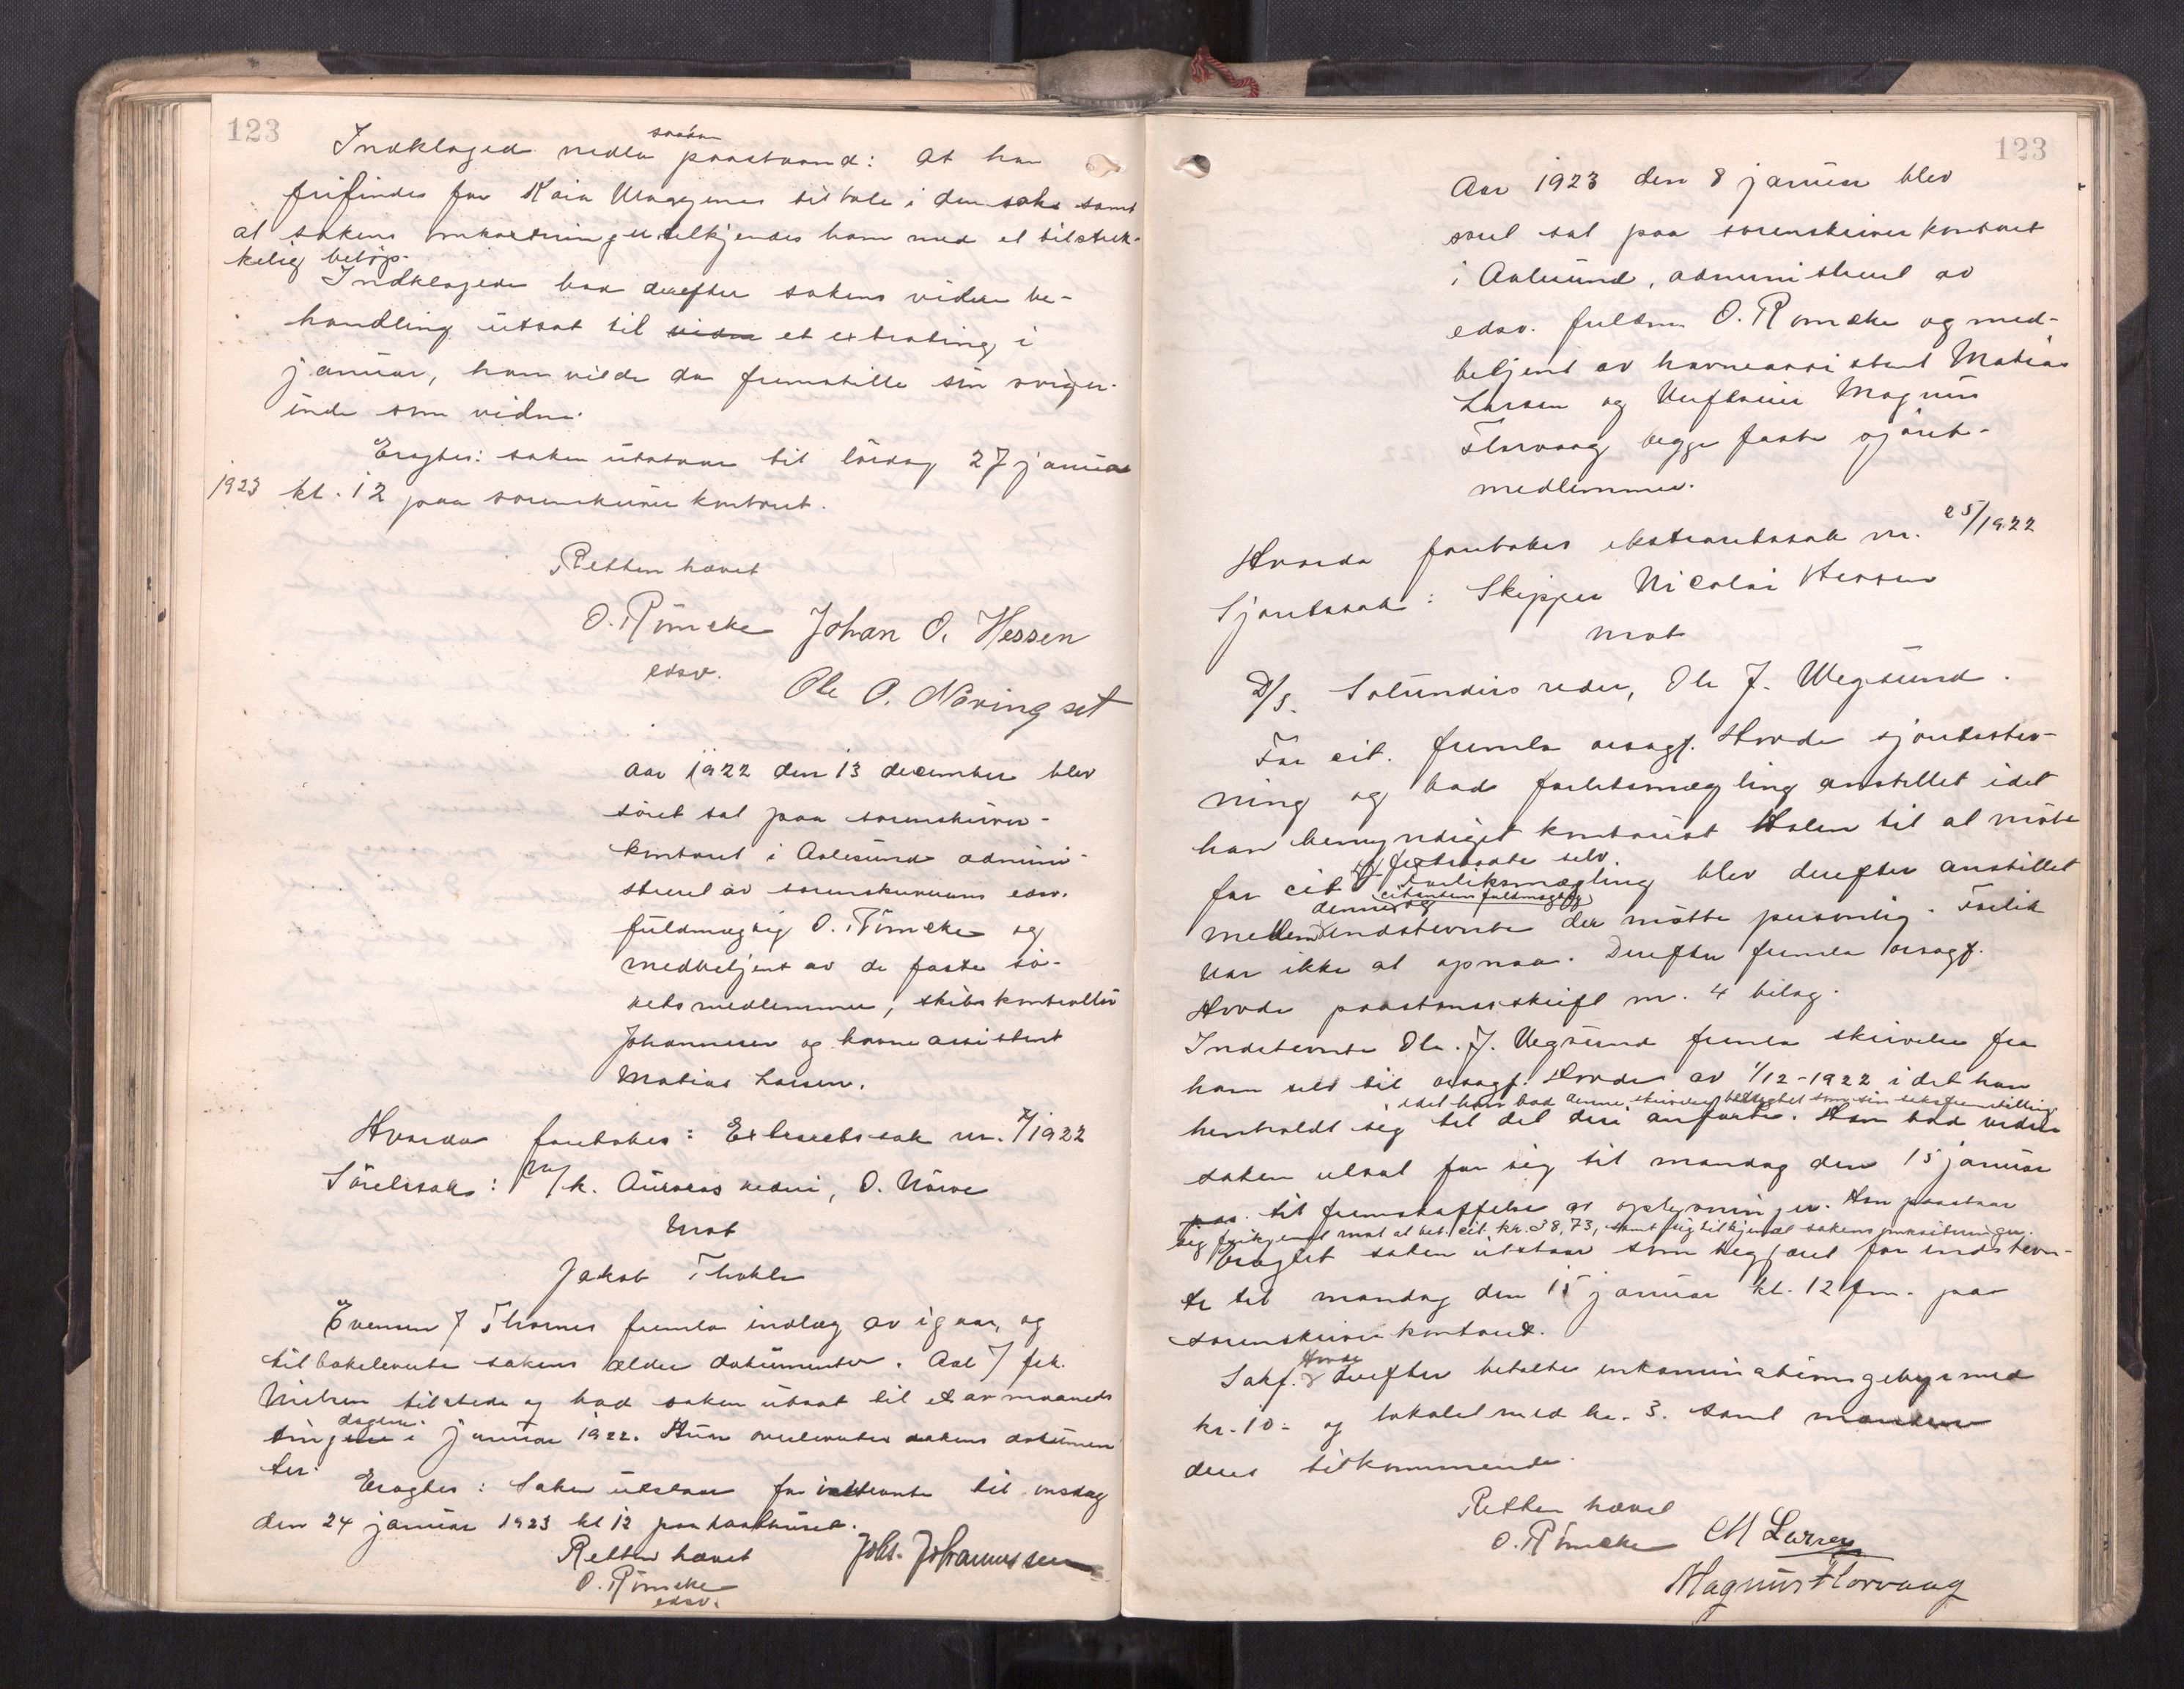 123
Indklagede nedla saadan paastaand: at han
frifindes for Kaia Uraggenes tiltale i denne sak samt
at sakens omkostninger tilkjendes ham med et tilstræk-
kelig beløp.
Indklagede bad derefter sakens videre be-
handling utsat til et extrating i
januar, han vilde da fremstille sin sviger-
inde som vidne.
Eragtes: saken utstaar til lördag 27 januar
1923 kl. 12 paa sorenskriverkontoret.
Retten hævet
O. Römcke Johan O. Hessen
edsv.
Ole O. Nöringset
Aar 1922 den 13 december blev
söret sat paa sorenskriver-
kontoret i Aalesund admini-
streret av sorenskriverens edsv.
fuldmægtig O. Römcke og
medbetjent av de faste sö-
retsmedlemmer, skibskontrollör
Johannesen og havneassistent
Matias Larsen.
Hvorda foretokes: Extraretssak nr. 7/1922
Söretssak: M/k. Auroras rederi, O. Nörve
mot
Jakob Thokle
Evensen f Thornes fremla indlæg av igaar, og
tilbakeleverte sakens ældre dokumenter. Aal f frk.
Nielsen tilstede og bad saken utsat til et av maaneds
tingdagene i januar 1922. Hun overleverte sakens dokumen
ter.
Eragtes: Saken utstaar for indstevnte til onsdag
den 24 januar 1923 kl 12 paa raadhuset.
Retten hævet Johs. Johannessen
O. Römcke
edsv.
123
Aar 1923 den 8 januar blev
sjøret sat paa sorenskriverkontoret
i Aalesund, administreret av
edsv. fuldm. O. Römcke og med-
betjent av havneassistent Matias
Larsen og Magnus
Florvaag begge faste sjøret-
medlemmer.
Hvorda foretokes ekstraretssak nr. 25/1922
Sjøretssak: Skipper Nicolai Hessen
mot
D/S. Solundirs reder, Ole J. Vegsund.
For cit. fremla orsagf. Hovde sjøretsstev-
ning og bad forliksmægling anstillet idet
han bemyndiget kontorist Holen til at møte
for cit selv. Forliksmægling blev derefter anstillet
mellem denne og citantens fuldmægtig indstevnte der møtte personlig. Forlik
var ikke at opnaa. Derefter fremla orsagf.
Hovde paastandsskrift m. 4 bilag.
Indstevnte Ole J. Vegsund fremla skrivelse fra
ham selv til orsagf. Hovde av 1/12-1922 i det han
idet han bad denne skrivelse betragtet som sin saksfremstilling
henholdt sig til det deri anførte. Han bad videre
saken utsat for sig til mandag den 15 januar
til fremskaffelse av oplysninger. Han paastaar
sig frikjendt mot at bet. cit. kr. 38,73, samt sig tilkjendt sakens omkostninger.
Eragtet saken utstaar som begjært for indstevn-
te til mandag den 15 januar kl. 12 fm. paa
sorenskriverkontoret.
Sakf. Hovde derefter betalte inkaminationsgebyr med
kr. 10.- og lokalet med kr. 3. samt mændene
deres tilkommende.
Retten hævet
O. Römcke M Larsen
Magnus Florvaag